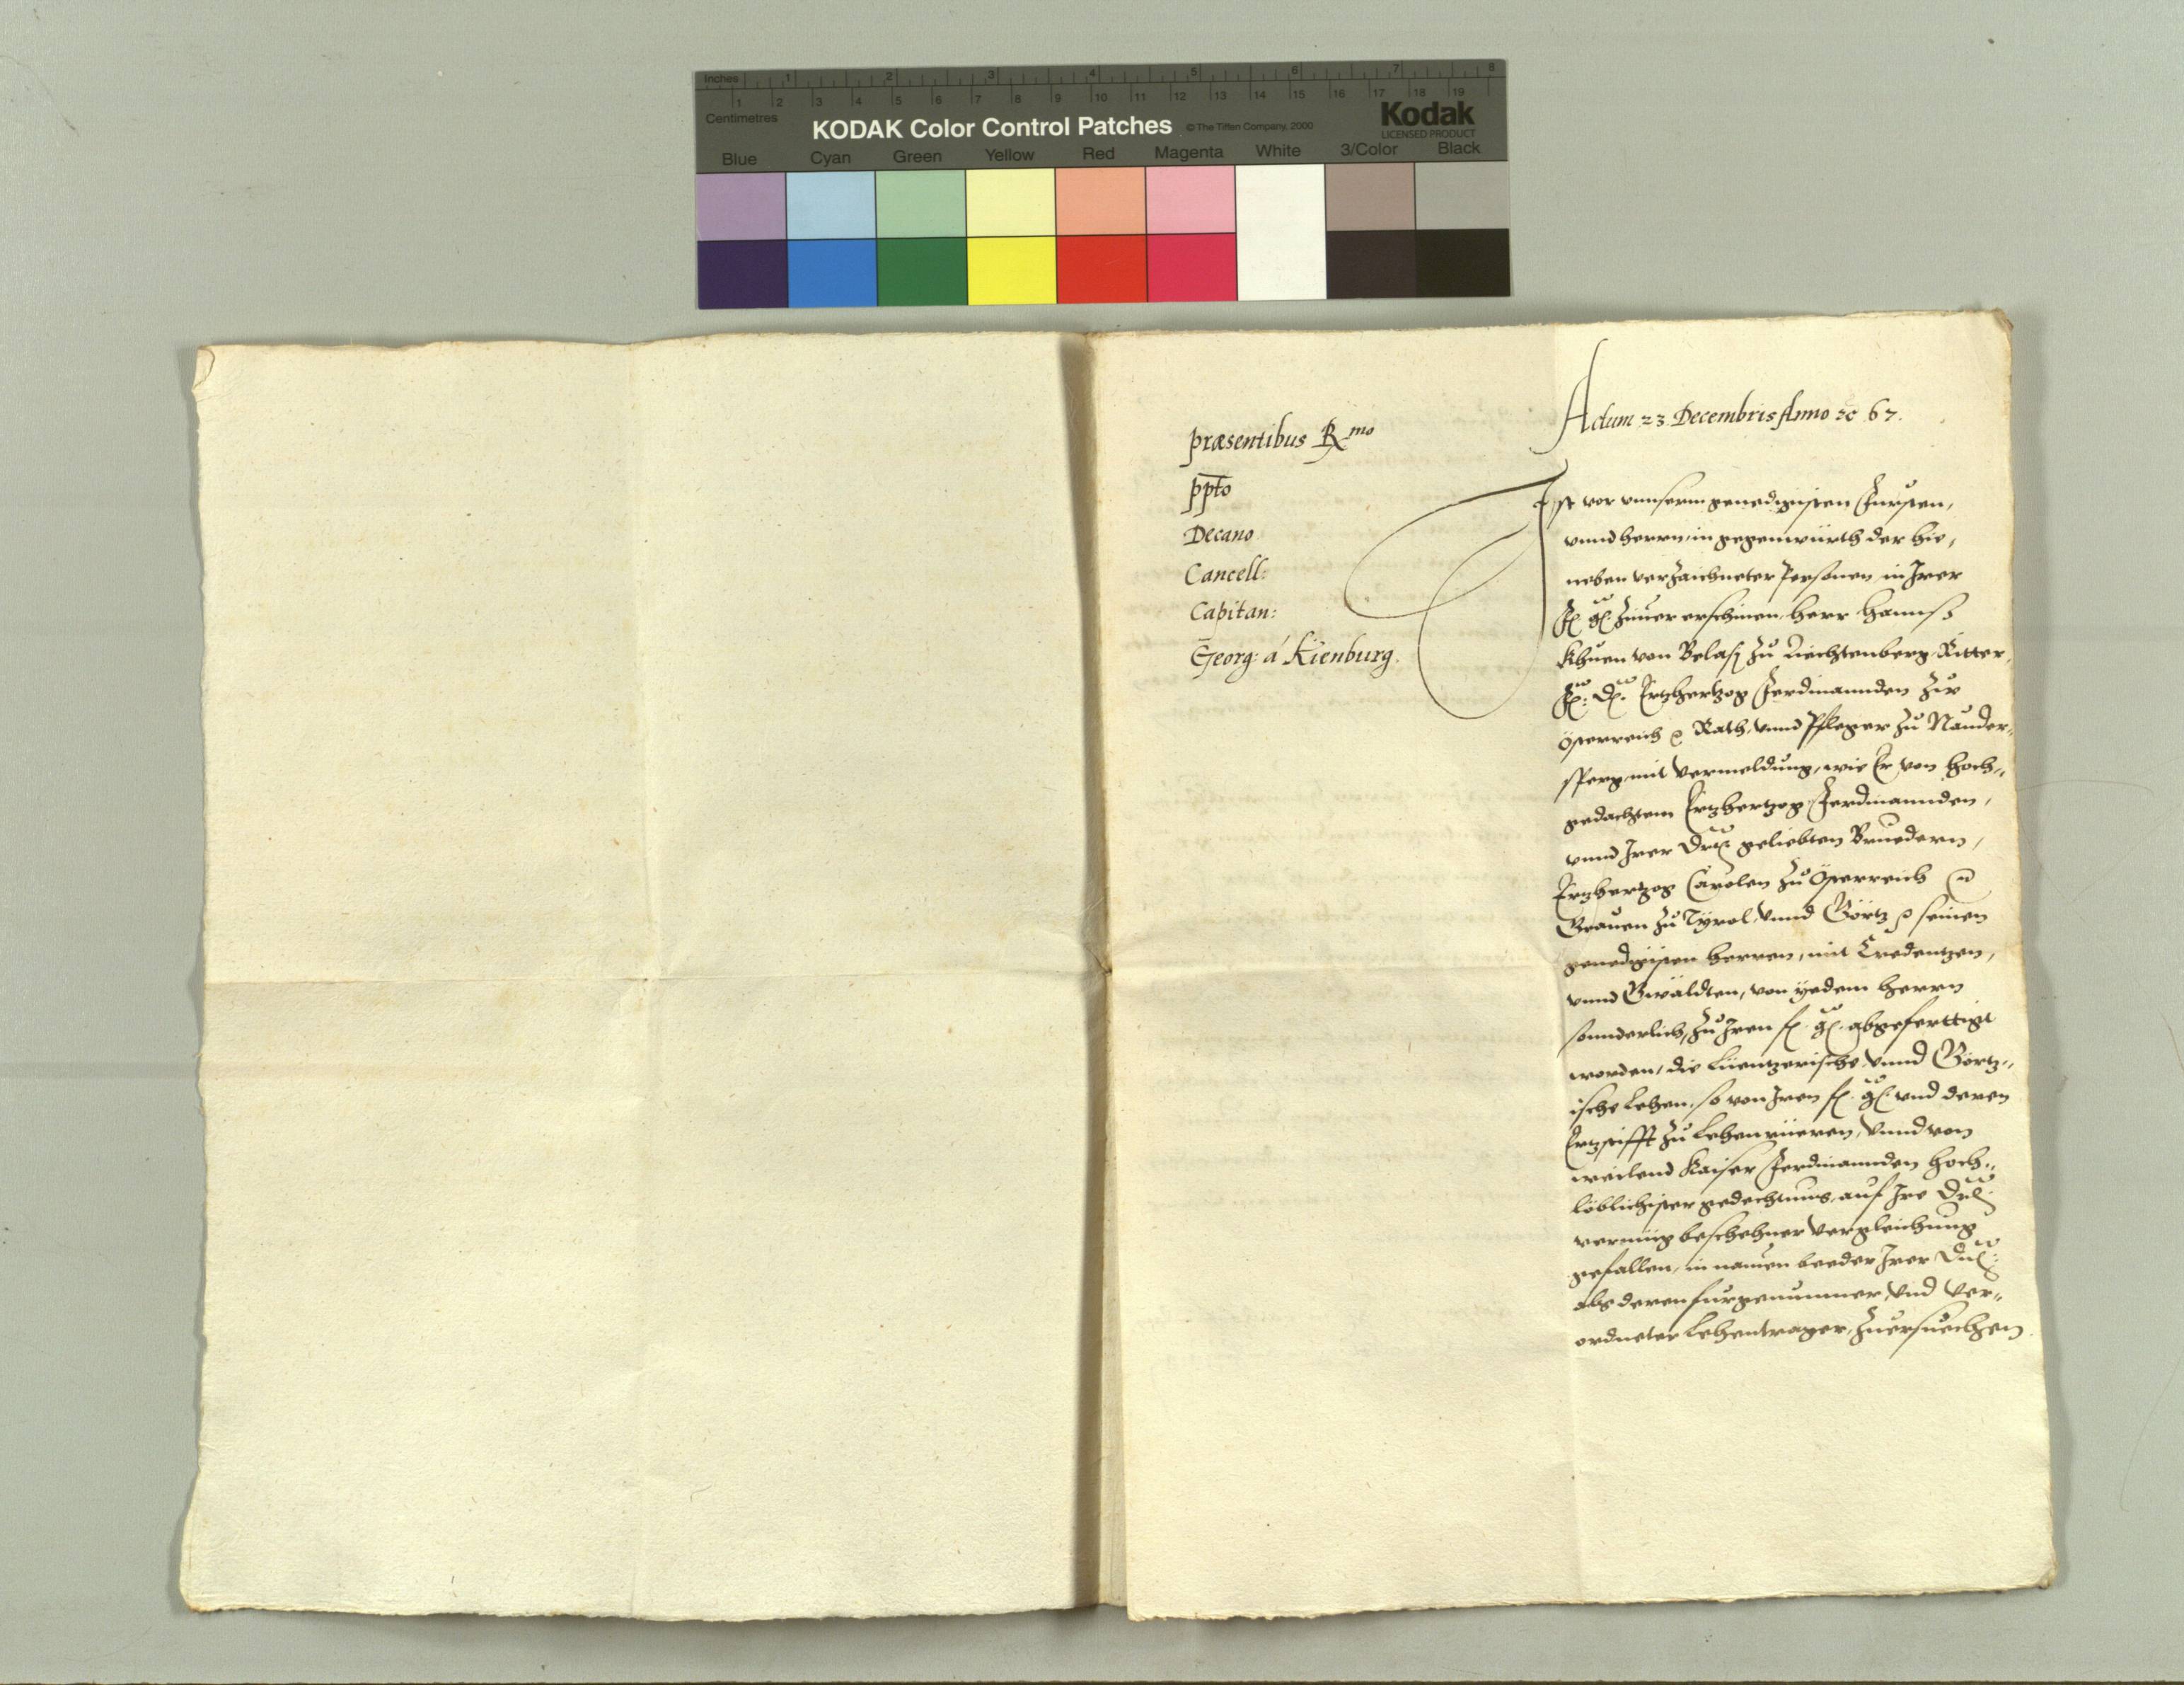 Inches 1 2 3 4 5 6 7 8
1 2 3 4 5 6 7 8 9 10 11 12 13 14 15 16 17 18 19
Centimetres
KODAK Color Control Patches © The Tiffen Company, 2000
Kodak
LICENSED PRODUCT
Blue Cyan Green Yellow Red Magenta White 3/Color Black
præsentibus R.mo
ppto
Decano
Cancell:
Capitan:
Georg: á Kienburg.
Actum 23. Decembris Anno ꝛc 67.
Ist vor unnserm genedigisten Fürsten,
unnd herrn, in gegenwürth der hie,
neben verzaichneter Personen, in Irer
F. G. Zimer erschinen, herr Hannß
Khuen von Belasÿ zu Liechtenberg, Ritter,
F: D: Ertzhertzog Ferdinannden zu
Österreich ꝛc Rath, unnd Pfleger zu Nauder,,
sperg, mit vermeldung, wie Er von hoch,,
gedachtem Ertzhertzog Ferdinannden,
unnd Irer Drt: geliebten Bruedern,
Ertzhertzog Carolen zu Österreich ꝛc
Grauen zu Tÿrol, unnd Görtz ꝛc seinen
genedigisten herren, mit Credentzen,
unnd Gwäldten, von ÿedem herrn
sonnderlich, zu Iren f. g. abgeferttigt
worden, die Lüentzerische unnd Görtz,,
ische Lehen, so von Iren f. g. und deren
Ertzstifft zu Lehen rüeren, unnd von
weilend Kaiser Ferdinannden hoch,,
löblichister gedechtnus, auf Ire Drt:
vermüg beschehner vergleichung
gefallen, in namen beeder Irer Drt:
als deren fürgenumner, und ver,,
ordneter Lehentrager, zuersuechen